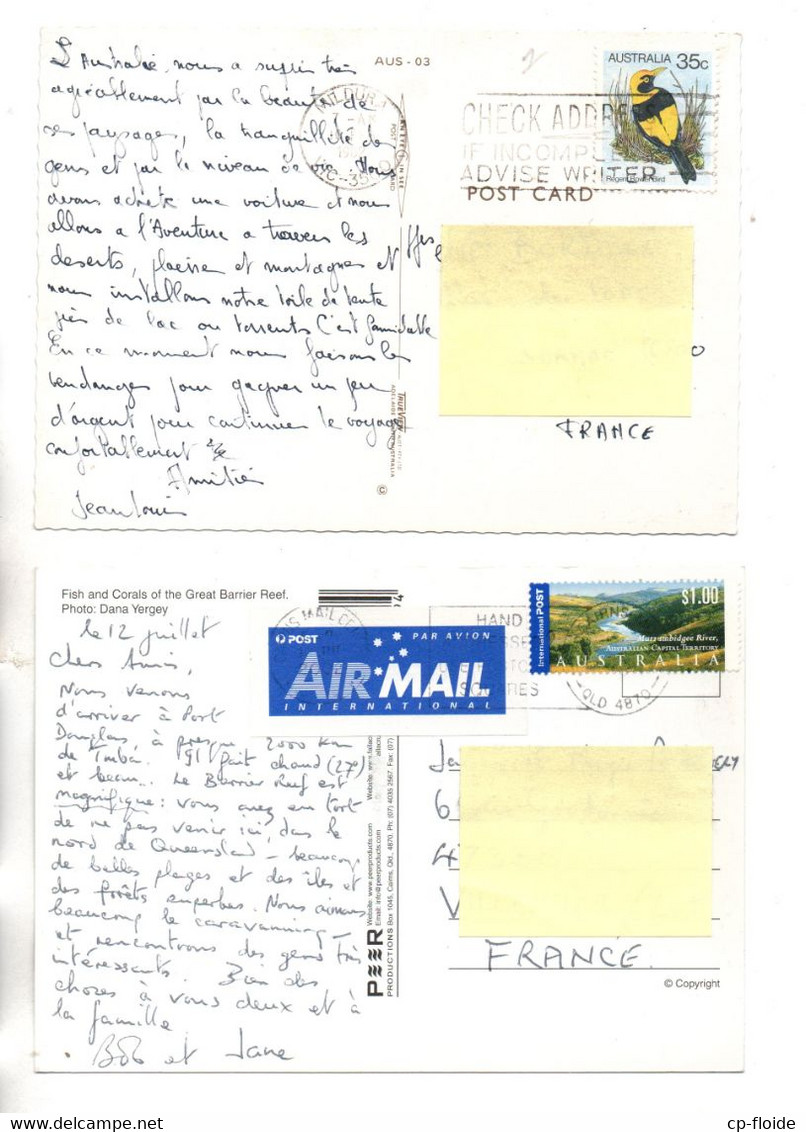 L'Australie nous a surpris très
agréablement par la beauté de
ses paysages, la tranquillité des
gens et par le niveau de vie. Nous
avons acheté une voiture et nous
allons a l'Aventure a travers les
deserts, plaines et montagnes et
nous installons notre toile de tente
près de lac ou torrents C'est formidable
En ce moment nous faisons les
vendanges pour gagner un peu
d'argent pour continuer le voyage
confortablement
Amitiés
Jean Louis
AUS - 03
MILDURA
AUSTRALIA 35c
Regent Bowerbird
CHECK ADDRESS
IF INCOMPLETE
ADVISE WRITER
POST CARD
FRANCE
©
Fish and Corals of the Great Barrier Reef.
Photo: Dana Yergey
le 12 juillet
Chers Amis,
Nous venons
d'arriver à Port
Douglas, à presque 2000 km
de fait chaud (27°)
et beau. Le Barrier Reef est
magnifique: vous avez eu tort
de ne pas venir ici, dans le
nord de Queensland - beaucoup
de belles plages et des îles et
des forêts superbes. Nous aimons
beaucoup le caravanning -
et rencontrons des gens très
intéressants. Bien des
choses à vous deux et à
la famille
Bob et Jane
POST PAR AVION
AIR MAIL
INTERNATIONAL
HAND
International POST
$1.00
Murrumbidgee River,
AUSTRALIAN CAPITAL TERRITORY
AUSTRALIA
QLD 4870
PEER
PRODUCTIONS Box 1045, Cairns, Qld., 4870. Ph: (07) 4035 2567. Fax: (07)
Email: info@peerproducts.com
Website: www.peerproducts.com
FRANCE
© Copyright
cp-floide